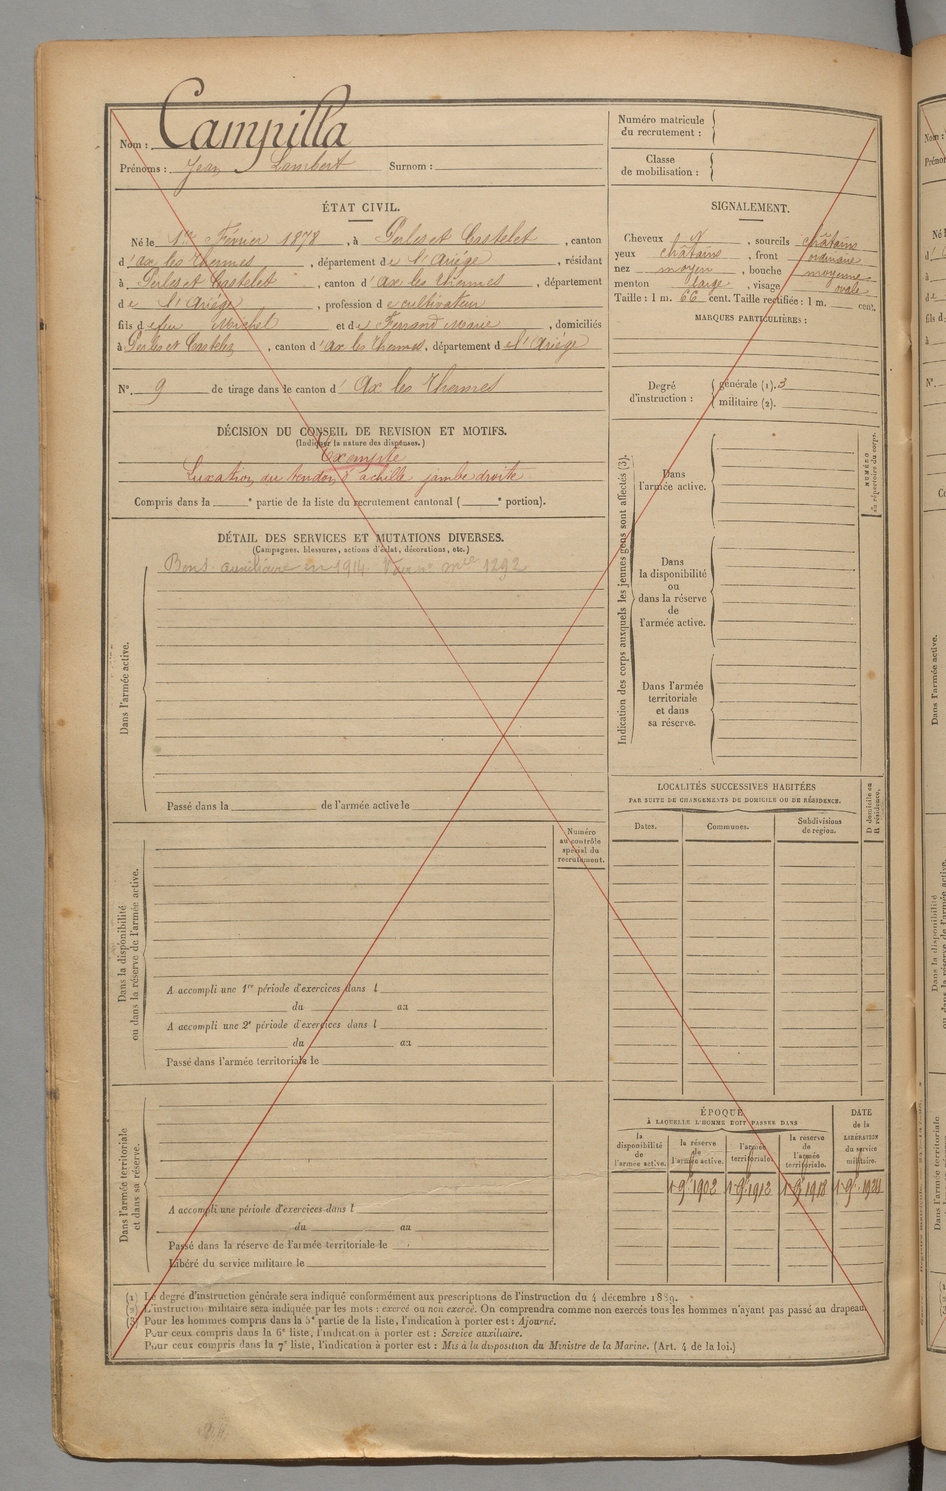 Nom : Campilla
Prénoms : Jean Lambert Surnom :
ÉTAT CIVIL.
Né le 1er Février 1878, à Perles et Castelet, canton
d'ax les thermes, département de l'Ariège, résidant
à Perles et Castelet, canton d'ax les thermes, département
de l'Ariège, profession de cultivateur
fils de feu Michel et de Ferrand Marie, domiciliés
à Perles et Castelet, canton d'ax les thermes, département de l'Ariège
N° 9 de tirage dans le canton d'Ax les Thermes
DÉCISION DU CONSEIL DE REVISION ET MOTIFS.
(Indiquer la nature des dispenses.)
Exempté
Luxation du tendon d'achille jambe droite
Compris dans la ° partie de la liste du recrutement cantonal ( ° portion).
DÉTAIL DES SERVICES ET MUTATIONS DIVERSES.
(Campagnes, blessures, actions d'éclat, décorations, etc.)
Bon s. auxiliaire en 1914. n° mle 1292
Dans l'armée active.
Passé dans la de l'armée active le
Numéro
au contrôle
spécial du
recrutement.
Dans la disponibilité
ou dans la réserve de l'armée active.
A accompli une 1re période d'exercices dans l
du au
A accompli une 2e période d'exercices dans l
du au
Passé dans l'armée territoriale le
Dans l'armée territoriale
et dans sa réserve.
A accompli une période d'exercices dans l
du au
Passé dans la réserve de l'armée territoriale le
Libéré du service militaire le
Numéro matricule
du recrutement :
Classe
de mobilisation :
SIGNALEMENT.
Cheveux , sourcils châtains
yeux châtains, front ordinaire
nez moyen, bouche moyenne
menton large, visage ovale
Taille : 1 m. 66 cent. Taille rectifiée : 1 m. cent.
MARQUES PARTICULIÈRES :
Degré
d'instruction :
générale (1). 3
militaire (2).
Indication des corps auxquels les jeunes gens sont affectés (3).
Dans
l'armée active.
Dans
la disponibilité
ou
dans la réserve
de
l'armée active.
Dans l'armée
territoriale
et dans
sa réserve.
NUMÉRO
au répertoire du corps.
LOCALITÉS SUCCESSIVES HABITÉES
PAR SUITE DE CHANGEMENTS DE DOMICILE OU DE RÉSIDENCE.
Dates. Communes. Subdivisions
de region.
D domicile ou
R résidence.
ÉPOQUE
À LAQUELLE L'HOMME DOIT PASSER DANS
la
disponibilité
de
l'armée active.
la réserve
de
l'armée active.
l'armée
territoriale.
la reserve
de
l'armée
territoriale.
DATE
de la
LIBÉRATION
du service
militaire.
1 9bre 1902 1 9bre 1912 1 9bre 1918 1 9bre 1924
(1) Le degré d'instruction générale sera indiqué conformément aux prescriptions de l'instruction du 4 décembre 1889.
(2) L'instruction militaire sera indiquée par les mots : exercé ou non exercé. On comprendra comme non exercés tous les hommes n'ayant pas passé au drapeau.
(3) Pour les hommes compris dans la 5e partie de la liste, l'indication à porter est : Ajourné.
Pour ceux compris dans la 6e liste, l'indication à porter est : Service auxiliaire.
Pour ceux compris dans la 7e liste, l'indication à porter est : Mis à la disposition du Ministre de la Marine. (Art. 4 de la loi.)